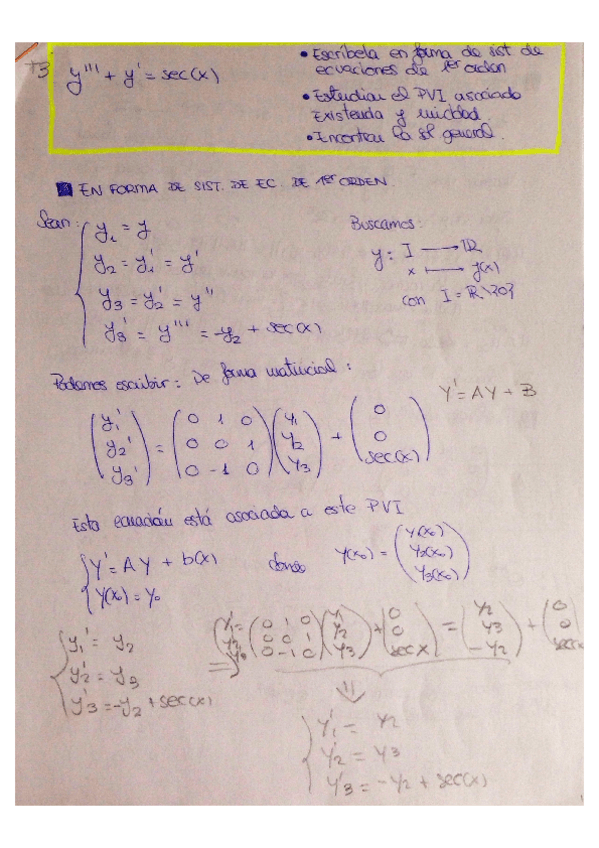 T3 y''' + y' = sec(x)
• Escríbela en forma de sist de ecuaciones de 1er orden
• Estudiar el PVI asociado
Existencia y unicidad.
• Encontrar la sl general.
EN FORMA DE SIST. DE EC. DE 1er ORDEN.
Sean: { y₁ = y
y₂ = y₁' = y'
y₃ = y₂' = y''
y₃' = y''' = -y₂ + sec(x)
Buscamos:
y: I → IR
x ↦ y(x)
con I = IR \ {0}
Podemos escribir: De forma matricial:
Y' = AY + B
(y₁' y₂' y₃') = (0 1 0 / 0 0 1 / 0 -1 0) (y₁ y₂ y₃) + (0 0 sec(x))
Esta ecuación está asociada a este PVI
{ Y' = AY + b(x)
Y(x₀) = Y₀
donde Y(x₀) = (Y₁(x₀) Y₂(x₀) Y₃(x₀))
{ y₁' = y₂
y₂' = y₃
y₃' = -y₂ + sec(x)
= (0 1 0 / 0 0 1 / 0 -1 0) (y₁ y₂ y₃) + (0 0 sec x) = (y₂ y₃ -y₂) + (0 0 sec x
⇓
{ y₁' = y₂
y₂' = y₃
y₃' = -y₂ + sec(x)